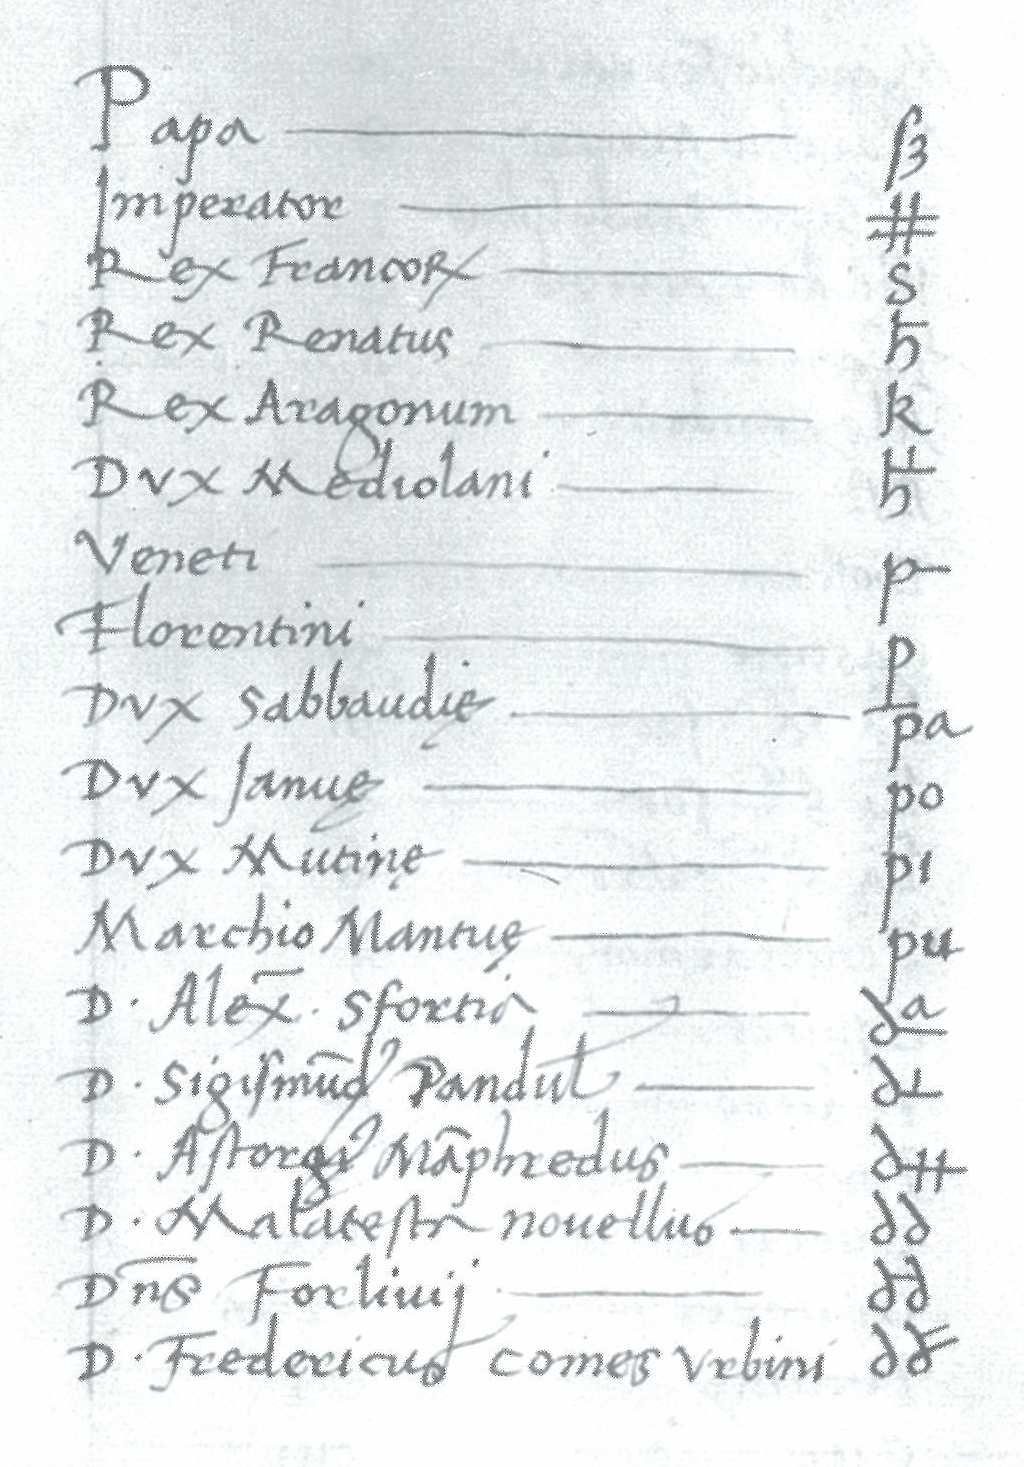 Papa ß
Imperator #
Rex Francoꝝ s
Rex Renatus ħ
Rex Aragonum k
Dvx Mediolani
Veneti p-
Florentini p
Dvx Sabbaudię pa
Dvx Janue po
Dvx Mutinę pi
Marchio Mantuę pu
D. Alex̄. Sfortia
D. Sigismūd Pandul
D. Astorgi Māphredus
D. Malatesta nouellus dd
Dn̄s Forliuij dd
D. Fredericus comes Vrbini